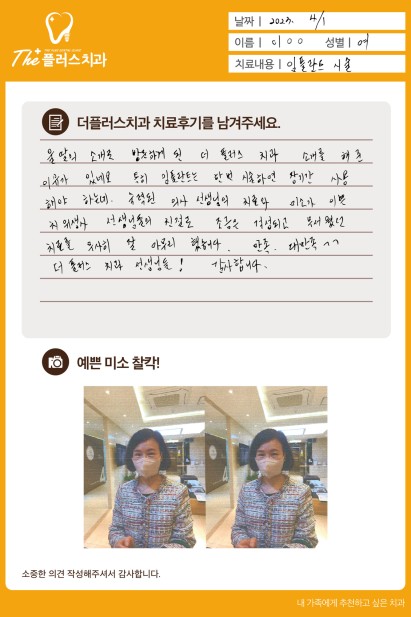 The+ 플러스치과
날짜 | 2023. 4/1
이름 | 이○○ 성별 | 여
치료내용 | 임플란트 시술
더플러스치과 치료후기를 남겨주세요.
소개로 방문하게 된 더 플러스 치과 소개를 해준
이유가 있네요 특히 임플란트는 한번 시술하면 장기간 사용
해야 하는데, 숙련된 의사 선생님의 치료와 미소가 이쁜
치위생사 선생님들의 친절로 조금은 걱정되고 무서웠던
치료를 무사히 잘 마무리 했습니다. 만족. 대만족 ^^
더 플러스 치과 선생님들! 감사합니다.
예쁜 미소 찰칵!
소중한 의견 작성해주셔서 감사합니다.
내 가족에게 추천하고 싶은 치과